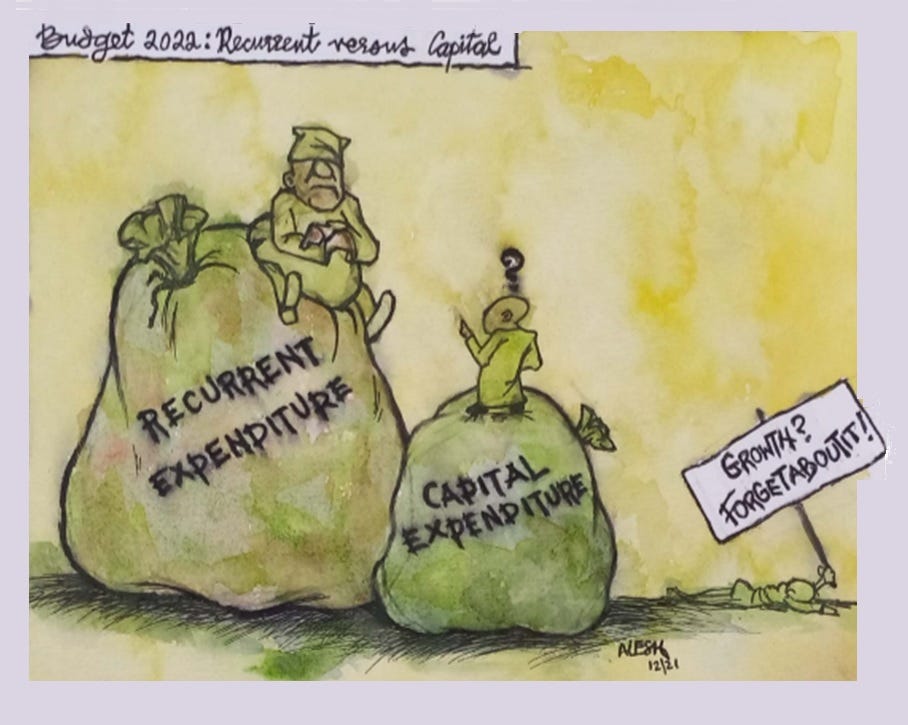 Budget 2022: Recurrent versus Capital
?
RECURRENT
EXPENDITURE
CAPITAL
EXPENDITURE
GROWTH?
FORGETABOUTIT!
ALESH
12/21